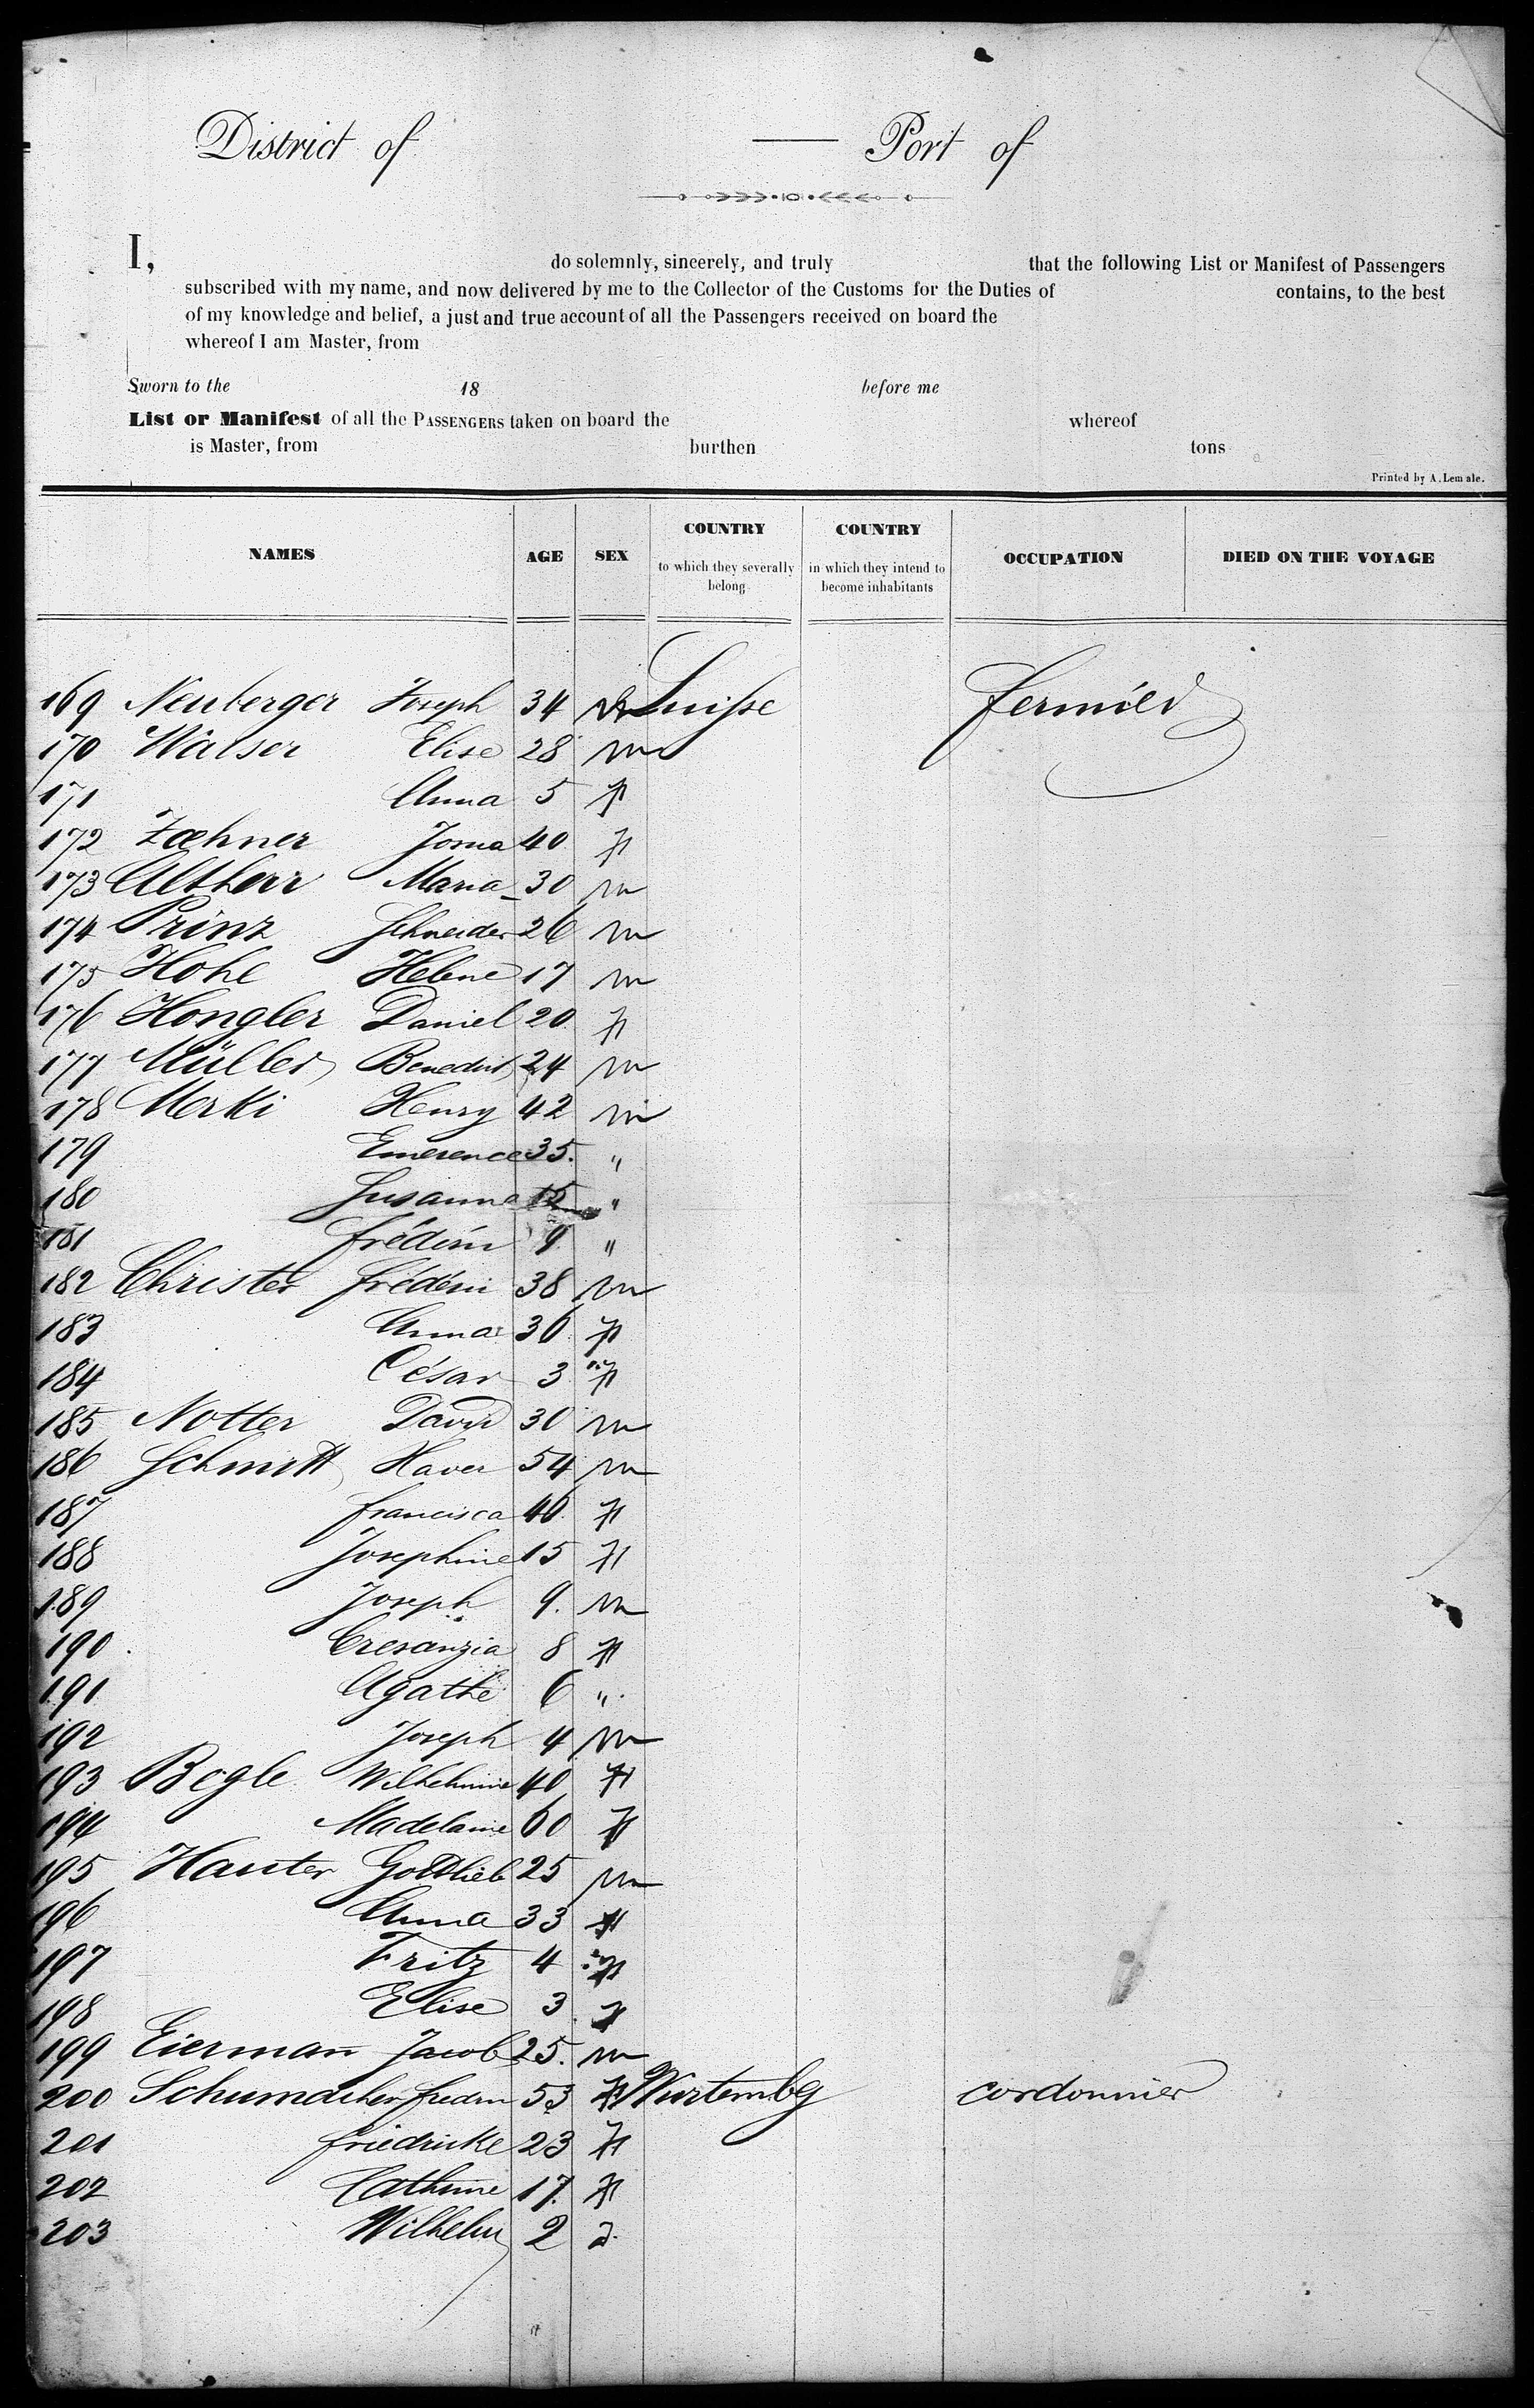 District of — Port of
I, do solemnly, sincerely, and truly that the following List or Manifest of Passengers
subscribed with my name, and now delivered by me to the Collector of the Customs for the Duties of contains, to the best
of my knowledge and belief, a just and true account of all the Passengers received on board the
whereof I am Master, from
Sworn to the 18 before me
List or Manifest of all the PASSENGERS taken on board the whereof
is Master, from burthen tons
Printed by A. Lemale.
NAMES AGE SEX COUNTRY to which they severally belong COUNTRY in which they intend to become inhabitants OCCUPATION DIED ON THE VOYAGE
169 Neuberger Joseph 34 m Suisse fermier
170 Walser Elise 28 m
171 Anna 5 f
172 Zaehner 40 f
173 Altherr Maria 30 m
174 Prinz Schneider 26 m
175 Hohl Helene 17 m
176 Hongler Daniel 20 f
177 Müller Benedict 24 m
178 Merki Henry 42 m
179 Emerence 35. "
180 Susanna 15 "
181 frédéric 9 "
182 Christer frédéric 38 m
183 Anna 36 f
184 César 3 f
185 Notter David 30 m
186 Schmitt Xaver 54 m
187 francisca 46. f
188 Josephine 15 f
189 Joseph 9. m
190 Cresanzia 8 f
191 Agathe 6 "
192 Joseph 4 m
193 Bogle Wilhelmine 40 f
194 Madelaine 60 f
195 Hauter Gottlieb 25 m
196 Anna 33 f
197 Fritz 4 f
198 Elise 3 f
199 Eierman Jacob 25. m
200 Schumacher 53 f Wurtembg cordonnier
201 friedricke 23 f
202 Catherine 17. f
203 Wilhelm 2 d.